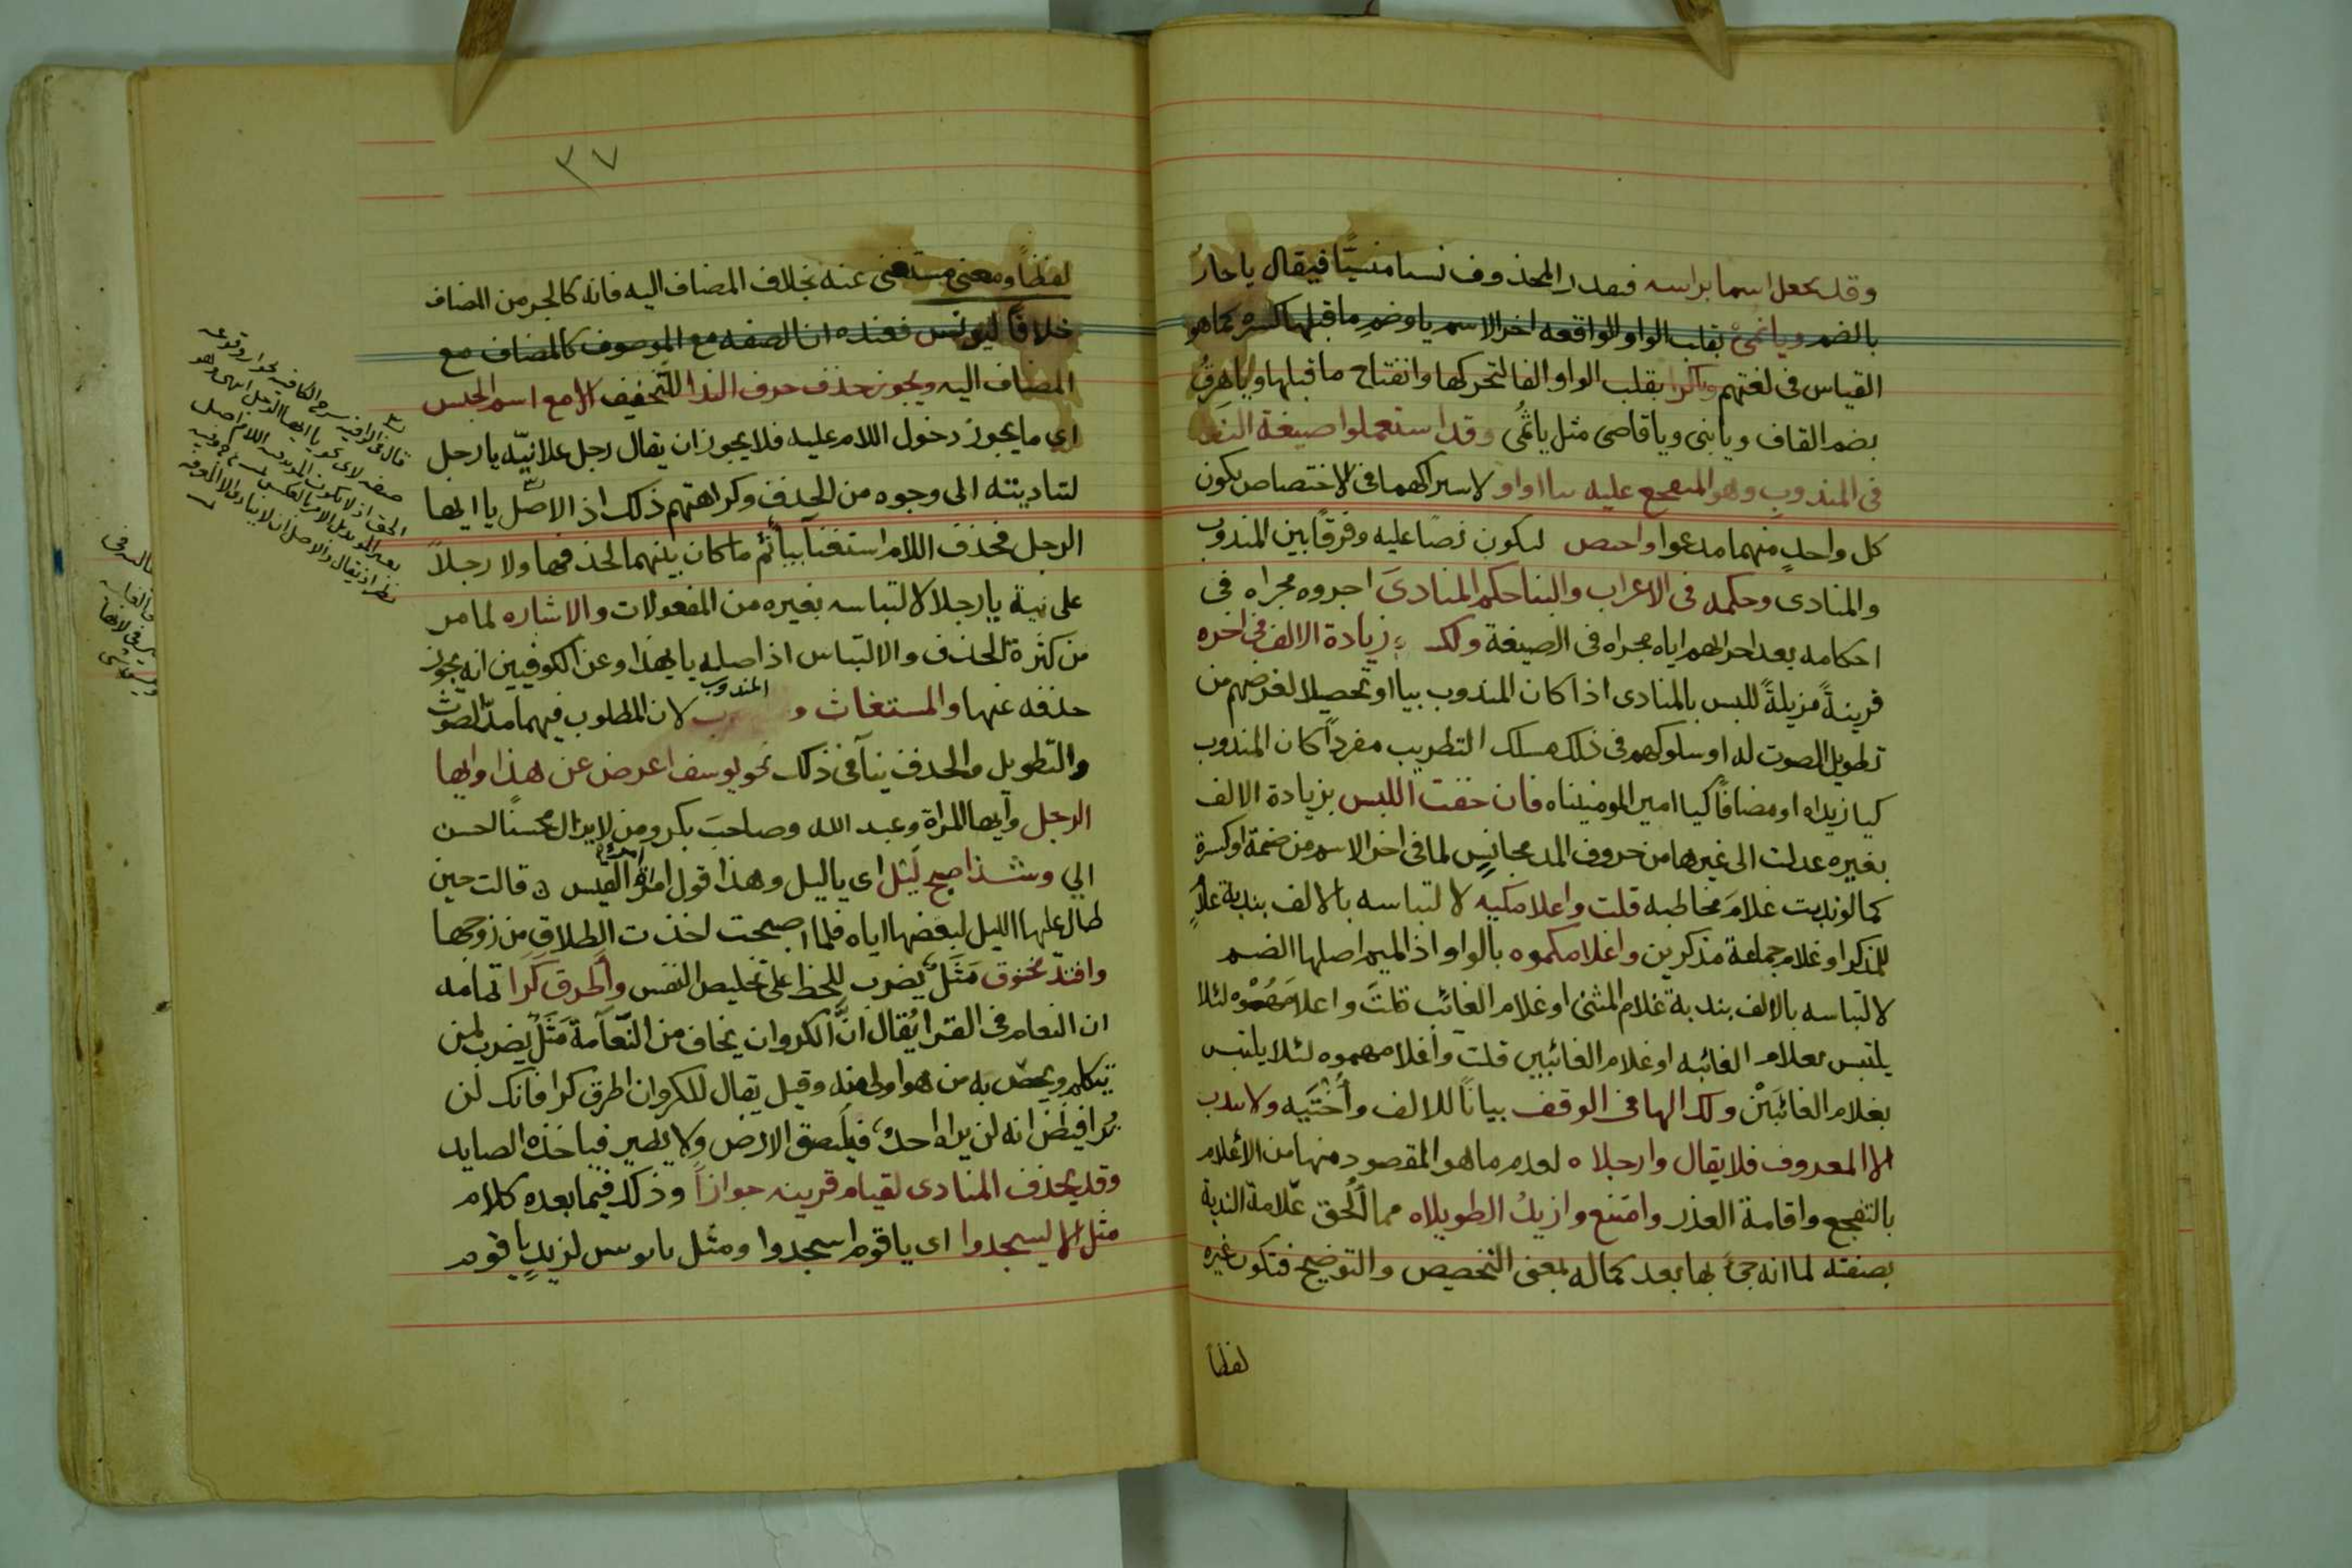 وقد يجعل اسما براسه فيقدر المحذوف نسيا منسيًّا فيقال يا حارُ
بالضم ويا ثمى بقلب الواو الواقعه اخر الاسم ياو ضم ما قبلها كسره كما هو
القياس فى لغتهم وياكرا بقلب الواو الفا لتحركها وانفتاح ما قبلها ويا هرقُ
بضم القاف ويا بنى ويا قاضى مثل يا ثُمى وقد استعملوا صيغة الندا
فى المندوب وهو المتفجع عليه بيا او وا و لاشتراكهما فى الاختصاص بكون
كل واحدٍ منهما مدعوا واختص ليكون نصًا عليه وفرقًا بين المندوب
والمنادى وحكمه فى الاعراب والبنا حكم المنادى اجروه مجراه فى
احكامه بعد اجرائهم اياه مجراه فى الصيغة ولك زيادة الالف فى اخره
قرينةً مزيلةً للبس بالمنادى اذا كان المندوب بيا او تحصيلا لغرضهم من
تطويل الصوت له او سلوكهم فى ذلك مسلك التطريب مفرداً كان المندوب
كيا زيداه او مضافًا كيا امير المومنيناه فان خفت اللبس بزيادة الالف
بغيره عدلت الى غيرها من حروف المد مجانسٍ لما فى اخر الاسم من ضمة او كسرة
كما لو ندبت غلامَ مخاطبه قلت واغلامكيه لالتباسه بالالف بندبة غلامٍ
للمذكر او غلام جماعة مذكرين واغلامكموه بالواو اذ الميم اصلها الضم
لالتباسه بالالف بندبة غلام المثنى او غلام الغائب قلتَ واغلامهُوْه لئلا
يلتبس بغلام الغائبه او غلام الغائبين قلت واغلامهموه لئلا يلتبس
بغلام الغائبَيْن ولك الها فى الوقف بيانًا للالف وأُختَيه ولا يندب
الا المعروف فلا يقال وارجلاه لعدم ما هو المقصود منها من الأعلام
بالتفجع واقامة العذر وامتنع وازيدُ الطويلاه مما أُلحق علامة الندبة
بصفته لما انه جئ بها بعد كماله لمعنى التخصيص والتوضيح فتكون غيره
لفظاً
٣٧
لفظاً ومعنى مستغنى عنه بخلاف المضاف اليه فانه كالجر من المضاف
خلافًا ليونس فعنده ان الصفه مع الموصوف كالمضاف مع
المضاف اليه ويجوز حذف حرف الندا للتخفيف الا مع اسم الجنس
اى ما يجوز دخول اللام عليه فلا يجوز ان يقال رجل علا نيّه يا رجل
لتاديته الى وجوه من الحذف وكراهتهم ذلك اذ الاصل يا ايها
الرجل فحذف اللام استغنآ بيا ثم ما كان بينهما لحذفها ولا رجلاً
على نية يا رجلا لالتباسه بغيره من المفعولات والاشاره لما مر
من كثرة الحذف والالتباس اذ اصله يا ايهذا وعن الكوفيين انه يجوز
حذفه عنها والمستغاث و المندوب لان المطلوب فيهما مدّ الصوت
والتطويل والحذف ينآفى ذلك نحو يوسف اعرض عن هذا وايها
الرجل وايها المراة وعبد الله وصاحبَ بكر ومن لا يزال محسنًا احسن
الي وشذ اصبح لَيْل اى يا ليل وهذا قول امراة القيس قالت حين
طال عليها الليل لبغضها اياه فلما اصبحت اخذت الطلاق من زوجها
وافتد مخنوق مَثَلٌ يضرب للحظ على تخليص النفس وأطرق كرا تمامه
ان النعام فى القرا يُقال انَّ الكروان يخاف من النّعآمة مَثَلٌ يضرب لمن
تيكلم ويحضر به من هو اولى منه وقيل يقال للكروان اطرق كرا فانك لن
تُرا فيظن انه لن يراه احدٌ فيلصق الارض ولا يطير فياخذه الصايد
وقد يحذف المنادى لقيام قرينه جوازاً وذلك فيما بعده كلام
مثل الا ليسجدوا اى يا قوم اسجدوا ومثل يا بوس لزيدٍ يا قوم